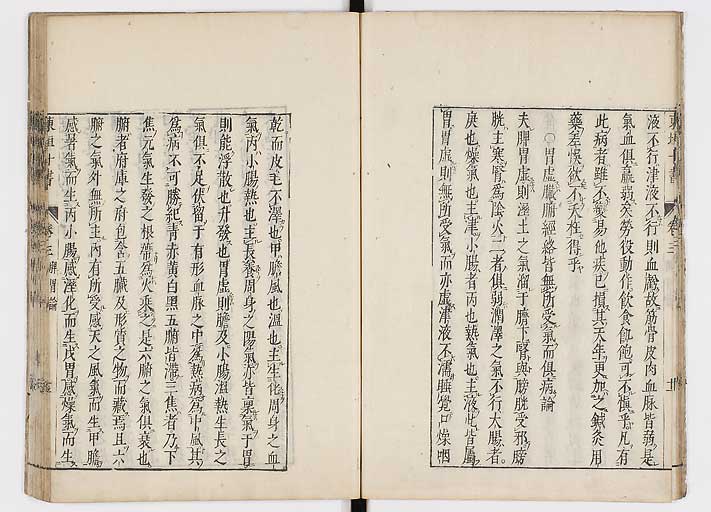 東垣十書　卷三
液不行津液不行則血虧故筋骨皮肉血脉皆弱是
氣血俱羸弱矣勞役動作飲食飢飽可不慎乎凡有
此病者雖不變易他疾已損其天年更加之鍼灸用
藥差悞欲不夭枉得乎
○胃虛臟腑經絡皆無所受氣而俱病論
夫脾胃虛則濕土之氣溜于臍下腎與膀胱受邪膀
胱主寒腎為陰火二者俱弱潤澤之氣不行大腸者
庚也燥氣也主津小腸者丙也熱氣也主液此皆屬
胃胃虛則無所受氣而亦虛津液不濡睡覺口燥咽
乾而皮毛不澤也甲膽風也溫也主生化周身之血
氣丙小腸熱也主長養周身之陽氣亦皆禀氣于胃
則能浮散也升發也胃虛則膽及小腸溫熱生長之
氣俱不足伏留于有形血脉之中為熱病為中風其
為病不可勝紀青赤黃白黑五腑皆滯三焦者乃下
焦元氣生發之根蒂為火乘之是六腑之氣俱衰也
腑者府庫之府包含五臟及形質之物而藏焉且六
腑之氣外無所主內有所受感天之風氣而生甲膽
感暑氣而生丙小腸感濕化而生戊胃感燥氣而生
東垣十書　卷三　脾胃論